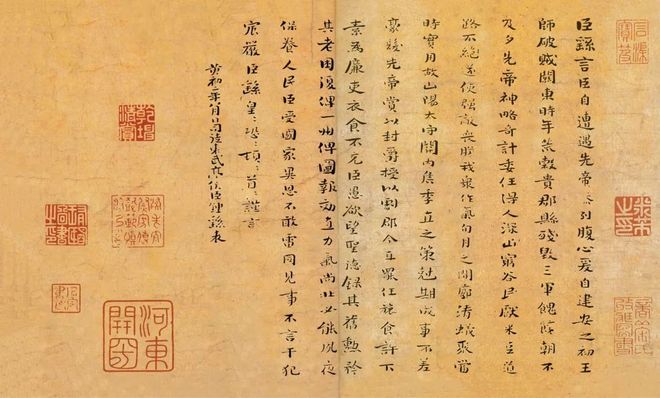 臣繇言臣自遭遇先帝忝列腹心爰自建安之初王
師破賊關東時年荒穀貴郡縣殘毀三軍餽饟朝不
及夕先帝神略奇計委任得人深山窮谷民獻米豆道
路不絕遂使強敵喪膽我衆作氣旬月之間廓清蟻聚當
時實用故山陽太守關內侯季直之策剋期成事不差
豪髮先帝賞以封爵授以劇郡今直罷任旅食許下
素爲廉吏衣食不充臣愚欲望聖德錄其舊勳矜
其老困復俾一州俾圖報效直力氣尚壯必能夙夜
保養人民臣受國家異恩不敢雷同見事不言干犯
宸嚴臣繇皇:恐:頓:首:謹言
黃初二年八月日司徒東武亭侯臣鍾繇表
乾坤清賞